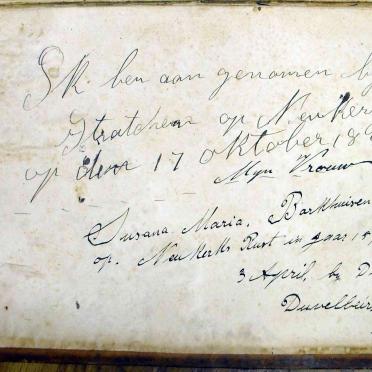 Ik ben aan genomen by
Stratchen op Neukerk
op den 17 oktober 18
Myn Vrouw
Susana Maria, Barkhuisen
op. Neukerks Rust in Jaar 18
3 April, by D
Duvelburg